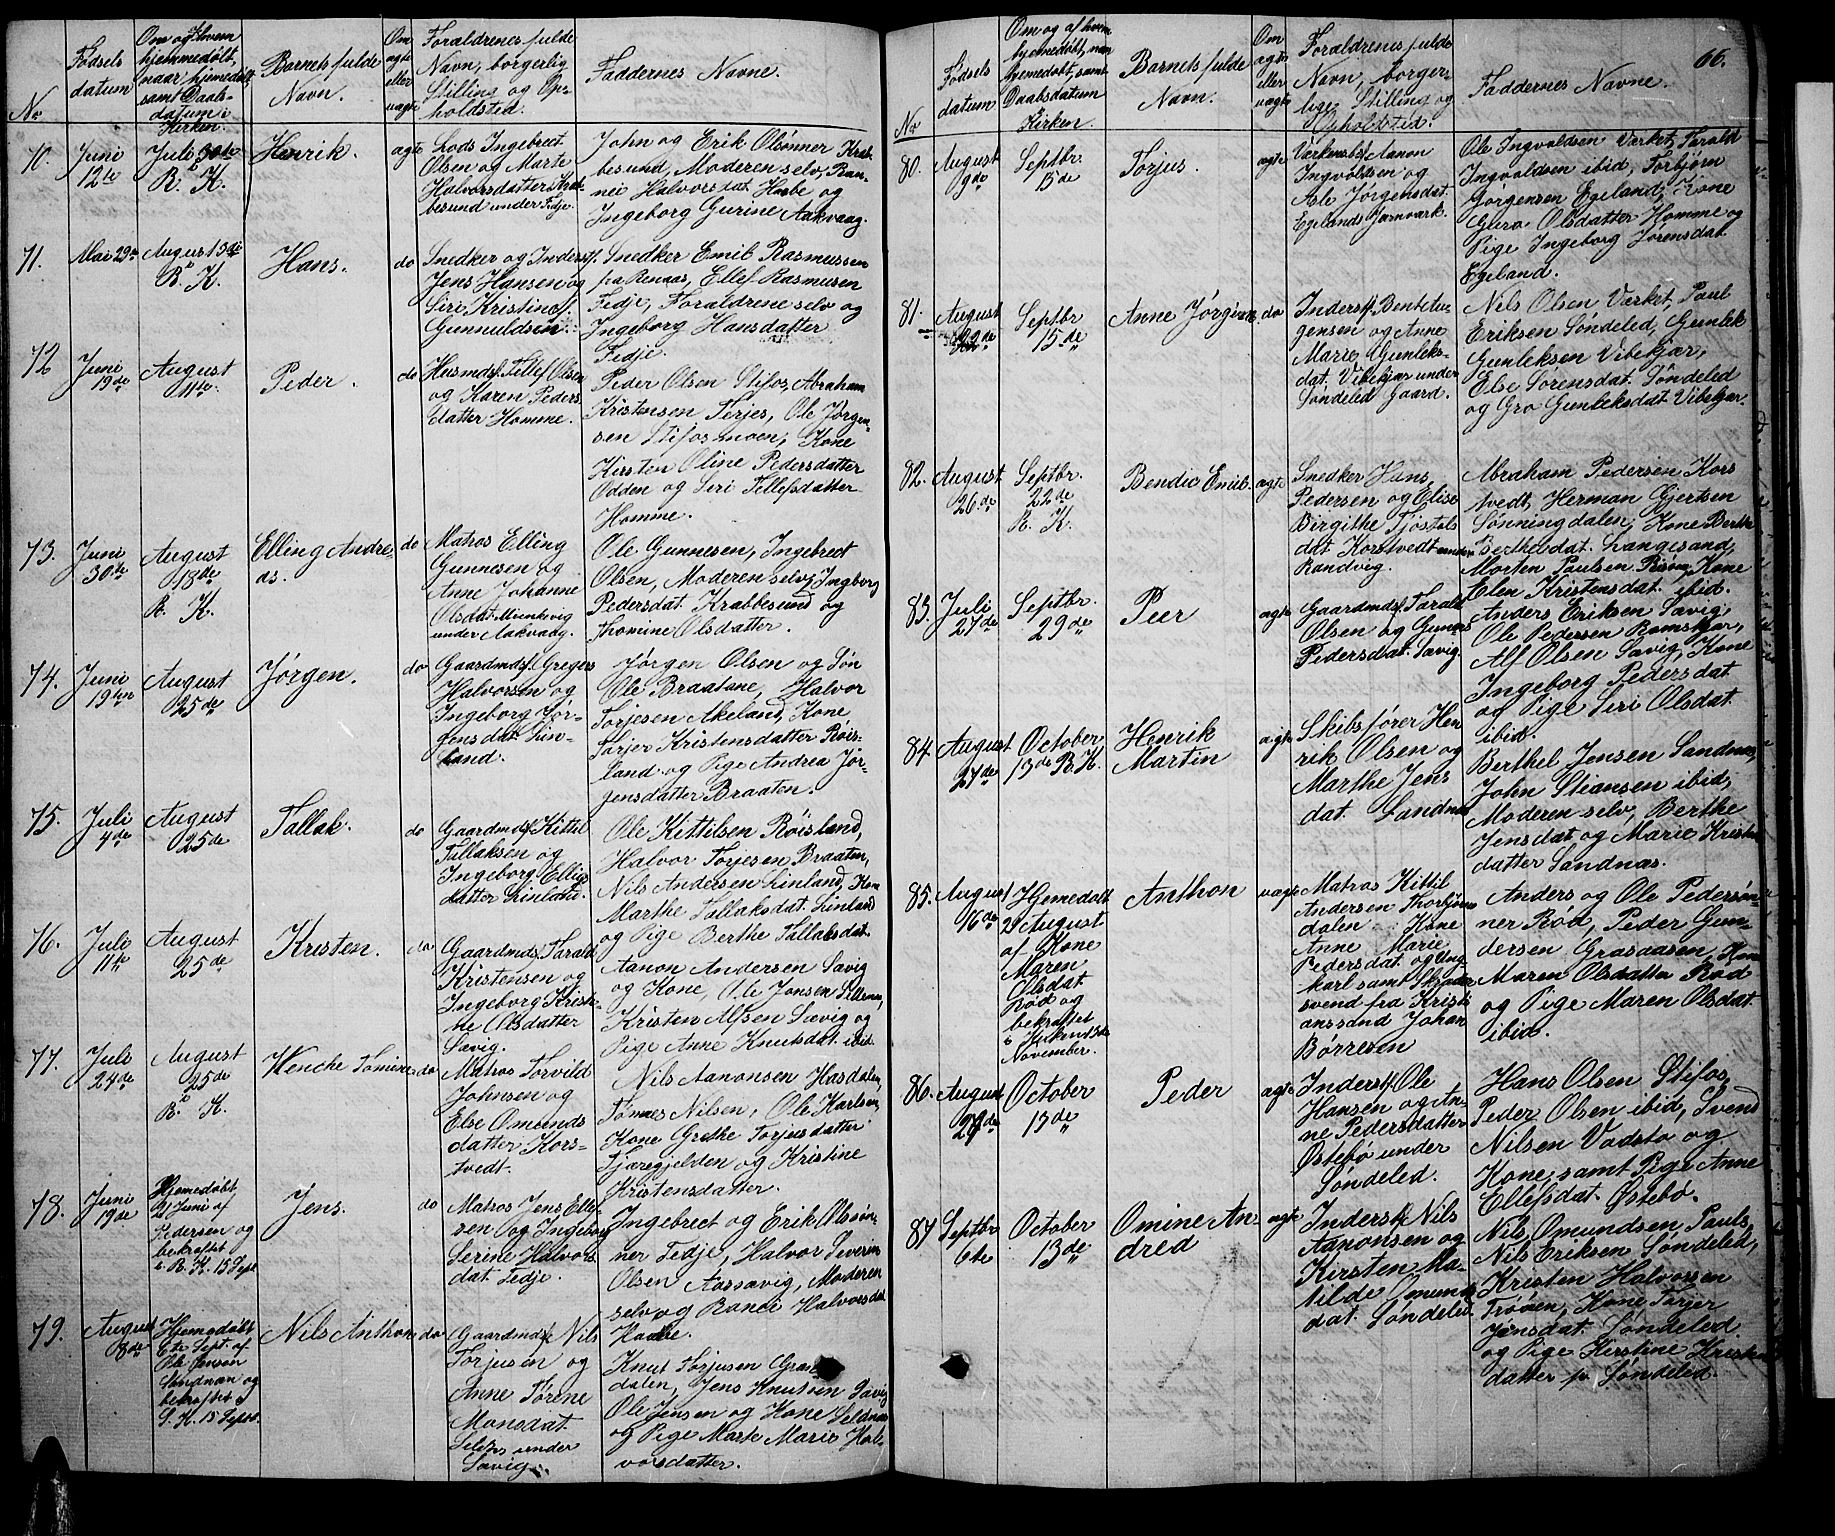 No
Fødsels
datum
Om og af hvem
hjemmedøbt,
naar hjemedøbt
samt Daabs-
datum i
Kirken.
Barnets fulde
Navn.
Om
ægte
eller
uægte
Forældrenes fulde
Navn, borgerlig
Stilling og Op-
holdsted.
Faddernes Navne.
70.
Juni
12te
Juli 30te
R. K.
Henrik.
ægte
Lods Ingebret
Olsen og Marte
Halvorsdatter Krab-
besund under Fidje.
John og Erik Olsønner Krab-
besund, Moderen selv, Ran-
nei Halvorsdat. Hasbe og
Ingeborg Gurine Aakvaag.
71.
Mai 29de
August
R. K.
Hans.
do
Snedker og Inderstf.
Jens Hansen og
Siri Kristinef.
Gunnuldsen.
Snedker Emil Rasmussen
fra Renaas, Ellef Rasmusen
Fidje, Forældrene selv og
Ingeborg Hansdatter
Fidje.
72
Juni
19de
August
11te
Peder.
do
Husmdsf. Tellef Olsen
og Karen Peders
datter Homme.
Peder Olsen Stifos, Abraham
Kristensen Terjes, Ole Jørgen-
sen Stifosmoen, Kone
Kirsten Oline Pedersdatter
Odden og Siri Tellefsdatter
Homme.
73.
Juni
30te
August
18de
R. K.
Elling Andre-
as.
do
Matros Elling
Gunnesen og
Anne Johanne
Olsdat. Mienkvig
under Aakvaag.
Ole Gunnesen, Ingebret
Olsen, Moderen selv, Ingborg
Pedersdat. Krabbesund og
Thomine Olsdatter.
74.
Juni
19ten
August
25de
Jørgen.
do
Gaardmdsf. Gregers
Halvorsen og
Ingeborg Jør-
gensdat. Lin-
land.
Jørgen Olsen og Søn
Ole Braatane, Halvor
Torjesen Akeland, Kone
Torjer Kristensdatter Røis-
land og Pige Andrea Jør-
gensdatter Braaten.
75.
Juli
4de
August
25de
Tallak.
do
Gaardmdsf. Kittil
Tallaksen og
Ingeborg Elligs
datter Linland.
Ole Kittilsen Røisland,
Halvor Torjesen Braaten,
Nils Andersen Linland, Kone
Marthe Tallaksdat. Linland
og Pige Berthe Tallaksdat.
76.
Juli
11te
August
25de
Kristen.
do
Gaardmdsf. Tarald
Kristensen og
Ingeborg Kristi-
ne Olsdatter
Savig.
Aanon Andersen Savig
og Kone, Ole Jonsen
Kristen Alfsen Sævig og
Pige Anne Knutsdat. ibid.
77.
Juli
24de
August
25de
R. K.
Wenche Tomine
do
Matros Torvild
Johnsen og
Else Omunds
datter Kors-
tvedt.
Nils Aanonsen Hasdalen,
Tønnes Nilsen, Ole Karlsen,
Kone Grethe Torjusdatter
Tjæregjelden og Kristine
Kristensdatter.
78.
Juni
19de
Hjemedøbt
21 Juni af
Pedersen og
bekræftet
i R. K. 15 Sept
Jens.
do
Matros Jens Ellef-
sen og Ingeborg
Serine Halvors
dat. Fidje.
Ingebret og Erik Olsøn-
ner Fidje, Halvor Severin
Olsen Aassævig, Moderen
selv og Ranei Halvorsdat
Hasbe.
79.
August
8de
Hjemedøbt
Sept. af
Ole Jensen
Sandnæs og
bekræftet i
S. K. 15 Sept.
Nils Anthon
do
Gaardmdsf. Nils
Torjusen og
Anne Tørene
Monsdat.
under
Sævig.
Knut Torjusen Gras-
dalen, Jens Knutsen Savig
Ole Jensen og Kone
og Pige Marte Marie Hal-
vorsdatter.
66.
No
Fødsels
datum
Om og af hvem
hjemedøbt, naar
hjemedøbt, samt
Daabsdatum
i Kirken.
Barnets fulde
Navn.
Om
ægte
eller
uægte
Forældrenes fulde
Navn, borger-
lige Stilling og
Opholdsted.
Faddernes Navne.
80.
August
9de
Septbr.
15de
Torjus.
ægte
Værkmdsf. Aanon
Ingvoldsen og
Asle Jørgensdat.
Egelands Jærnværk.
Ole Ingvoldsen Værket, Tarald
Ingvoldsen ibid, Torbjørn
Gørgensen Egeland, Kone
Guro Olsdatter Homme og
Pige Ingeborg Sørensdat.
Egeland.
81.
August
22de
Septbr.
15de
Anne Jørgine.
do
Inderstf. Bent Tor-
gensen og Anne
Marie Gunleks-
dat. Vibekjær under
Søndeled Gaard.
Nils Olsen Værket, Paul
Eriksen Søndeled, Gunlek
Gunleksen Vibekjær,
Else Sørensdat. Søndeled
og Gro Gunleksdat. Vibekjær.
82.
August
26de
Septbr.
22de
R. K.
Bendic Emil.
ægte
Snedker Hans
Pedersen og Elise
Birgithe Tjøstels
dat Korstvedt under
Randvig.
Abraham Pedersen Kors
tvedt, Herman Gjertsen
Sønningdalen, Kone Berthe
Berthelsdat. Langesand,
Morten Paulsen Risøen, Kone
Elen Kristensdat. ibid.
83.
Juli
27de
Septbr.
29de
Peer
ægte
Gaardmdsf. Tarald
Olsen og Gunn
Pedersdat. Savig.
Anders Eriksen Savig,
Ole Pedersen Ramskjær,
Alf Olsen Savig, Kone
Ingeborg Pedersdat
og Pige Siri Olsdat.
ibid.
84.
August
27de
October
13de R. K.
Henrik
Martin
ægte
Skibsfører Hen
rik Olsen og
Marthe Jens
dat. Sandnæs
Berthel Jensen Sandnæs,
John Stiansen ibid,
Moderen selv, Berthe
Jensdat og Marie Kristens
datter Sandnæs.
85.
August
16de
Hjemedøbt
29 August
af Kone
Maren
Olsdat
Rød og
bekræftet
i Kirken 3de
November.
Anthon
uægte
Matros Kittil
Andersen Thorbjørns
dalen Kone
Anne Marie
Pedersdat. og Ung
karl samt Skræder
svend fra Kristi
anssand Johan
Børresen
Anders og Ole Pedersøn-
ner Rød, Peder Gun-
dersen Grasaasen, Kone
Maren Olsdatter Rød
og Pige Maren Olsdat.
ibid.
86.
August
29de
October
13de
Peder
ægte
Inderstf. Ole
Hansen og An-
ne Pedersdatter
Østebø under
Søndeled.
Hans Olsen Stifos,
Peder Olsen ibid, Svend
Nilsen Vadsto og
Kone, samt Pige Anne
Ellefsdat. Østebø.
87
Septbr
6te
October
13de
Omine An-
dred
ægte
Inderstf. Nils
Aanonsen og
Kirsten Ma-
tilde Omunds
dat. Søndeled.
Nils Omundsen Pauls
Nils Eriksen Søndeled,
Kristen Halvorsen
Trøen, Kone Torjer
Jensdat. Søndeled
og Pige Kirstine Kristens
datter fr. Søndeled.